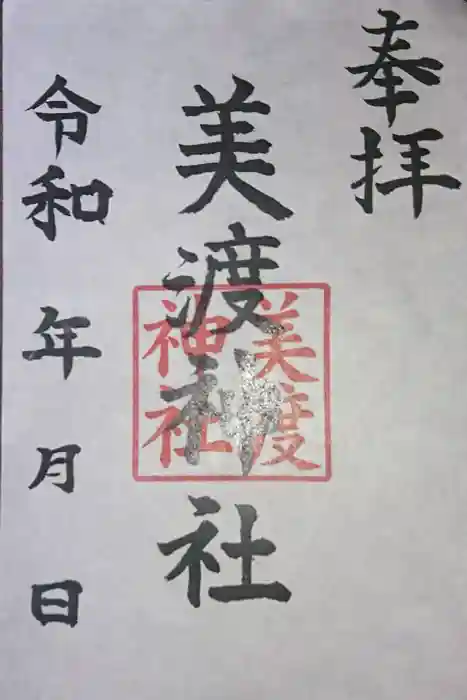 奉拝
美渡神社
美度
神社
令和 年 月 日